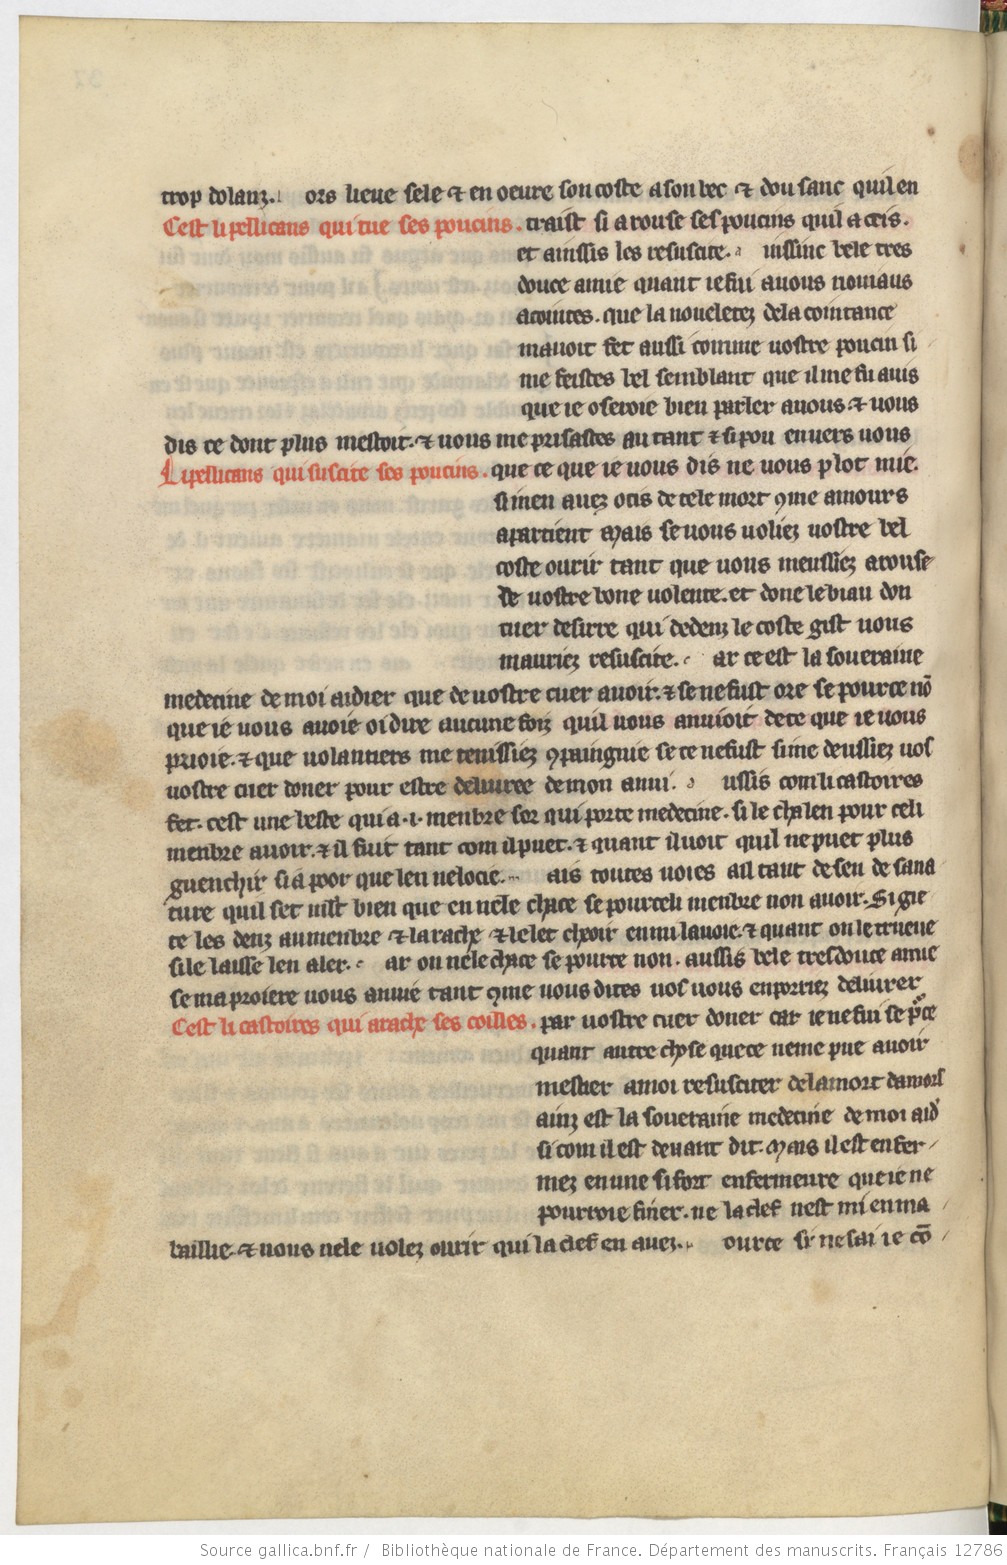 trop dolanz. ors lieue sele ⁊ en oeure son coste a son bec ⁊ dou sanc quil en
Cest li pellicans qui tue ses poucins. traist si arouse ses poucins quil a ocis.
et ainssis les resuscite. uissinc bele tres
douce amie quant ie fui a uous nouiaus
acointes. que la noueletez de la cointance
mauoit fet aussi comme uostre poucin si
me feistes bel semblant que il me fu auis
que ie oseroie bien parler a uous ⁊ uous
dis ce dont plus mestoit. ⁊ uous me prisastes autant ⁊ si pou enuers uous
Li pellicans qui suscite ses poucins. que ce que ie uous dis ne uous plot mie.
si men auez ocis de tele mort ꝯme amours
apartient Mais se uous uoliez uostre bel
coste ourir tant que uous meussiez arouse
de uostre bone uolente. et done le biau don
cuer desirre qui dedenz le coste gist uous
mauriez resuscite. ar ce est la souueraine
medecine de moi aidier que de uostre cuer auoir. ⁊ se ne fust ore se pour ce nō
que ie uous auoie oi dire aucune foiz quil uous anuioit de ce que ie uous
prioie. ⁊ que uolantiers me tenissiez ꝯpaingnie se ce ne fust si me deussiez uos
uostre cuer doner pour estre deliuree de mon anui. ussis com li castoires
fet. cest une beste qui a .i. menbre sor qui porte medecine. si le chalen pour celi
menbre auoir. ⁊ il fuit tant com il puet. ⁊ quant il uoit quil ne puet plus
guenchir si a poor que len ne locie. ais toutes uoies ail tant de sen de sana
ture quil set mlt bien que en nele chace se pour celi menbre non auoir. Si gie
te les denz au menbre ⁊ larache ⁊ le let cheoir enmi la uoie. ⁊ quant on le trueue
si le laisse len aler. ar on nele chace se pour ce non. aussis bele tres douce amie
se ma proiere uous anuie tant ꝯme uous dites uos uous en porriez deliurer
Cest li castoires qui arache ses coilles. par uostre cuer doner car ie ne sui se p̄ ce
quant autre chose que ce ne me pue auoir
mestier a moi resusciter de la mort damors
ainz est la souueraine medecine de moi aid'
si com il est deuant dit. Mais il est enfer
mez en une si fort enfermeure que ie ne
pourroie finer. ne la clef nest mi en ma
baillie. ⁊ uous nele uolez ourir qui la clef en auez. our ce si ne sai ie cō
Source gallica.bnf.fr / Bibliothèque nationale de France. Département des manuscrits. Français 12786